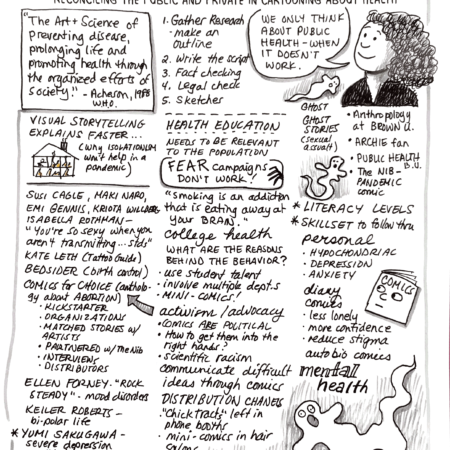 RECONCILING THE PUBLIC AND PRIVATE IN CARTOONING ABOUT HEALTH
"The Art + Science of
Preventing disease,
prolonging life and
promoting health through
the organized efforts of
society." - Acheson, 1988
W.H.O.
1. Gather Research
- make an
outline
2. Write the script
3. Fact checking
4. Legal check
5. Sketches
WE ONLY THINK
ABOUT PUBLIC
HEALTH - WHEN
IT DOESN'T
WORK.
GHOST
GHOST
STORIES
(sexual
assault)
• Anthropology
at BROWN U.
• ARCHIE fan
• PUBLIC HEALTH
B.U.
• The NIB -
PANDEMIC
comic
VISUAL STORYTELLING
EXPLAINS FASTER...
(why ISOLATIONISM
won't help in a
pandemic)
SUSI CAGLE, MAKI NARO,
EMI GENNIS, KRIOTA WILLBERG
ISABELLA ROTHMAN -
"You're so sexy when you
aren't transmitting... stds"
KATE LETH (Tattoo Guide)
BEDSIDER (birth control)
COMICS for CHOICE (anthology
about ABORTION)
• KICKSTARTER
• ORGANIZATIONS
• MATCHED STORIES w/
ARTISTS
• PARTNERED w/ The Nib
• INTERVIEWS
• DISTRIBUTORS
ELLEN FORNEY - "ROCK
STEADY" - mood disorders
KEILER ROBERTS -
bi-polar life
* YUMI SAKUGAWA -
severe depression
HEALTH EDUCATION
NEEDS TO BE RELEVANT
TO THE POPULATION
FEAR campaigns
DON'T WORK!
"Smoking is an addiction
that is eating away at
your BRAIN."
college health
WHAT ARE THE REASONS
BEHIND THE BEHAVIOR?
• use student talent
• involve multiple dept.s
• MINI-COMICS!
activism / advocacy
• COMICS ARE POLITICAL
• How to get them into the
right hands?
• scientific racism
communicate difficult
ideas through comics
DISTRIBUTION CHANELS
• "Chick tracts" left in
phone booths
• mini-comics in hair
salons
* LITERACY LEVELS
* SKILLSET to follow thru
personal
• HYPOCHONDRIAC
• DEPRESSION
• ANXIETY
diary
comics
COMICS
• less lonely
• more confidence
• reduce stigma
auto bio comics
mental
health